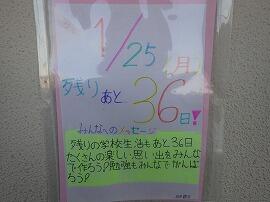 1/25(月)
残りあと36日!
みんなへのメッセージ
残りの学校生活もあと36日
たくさんの楽しい思い出をみんな
で作ろう!勉強もみんなでがんば
ろう!